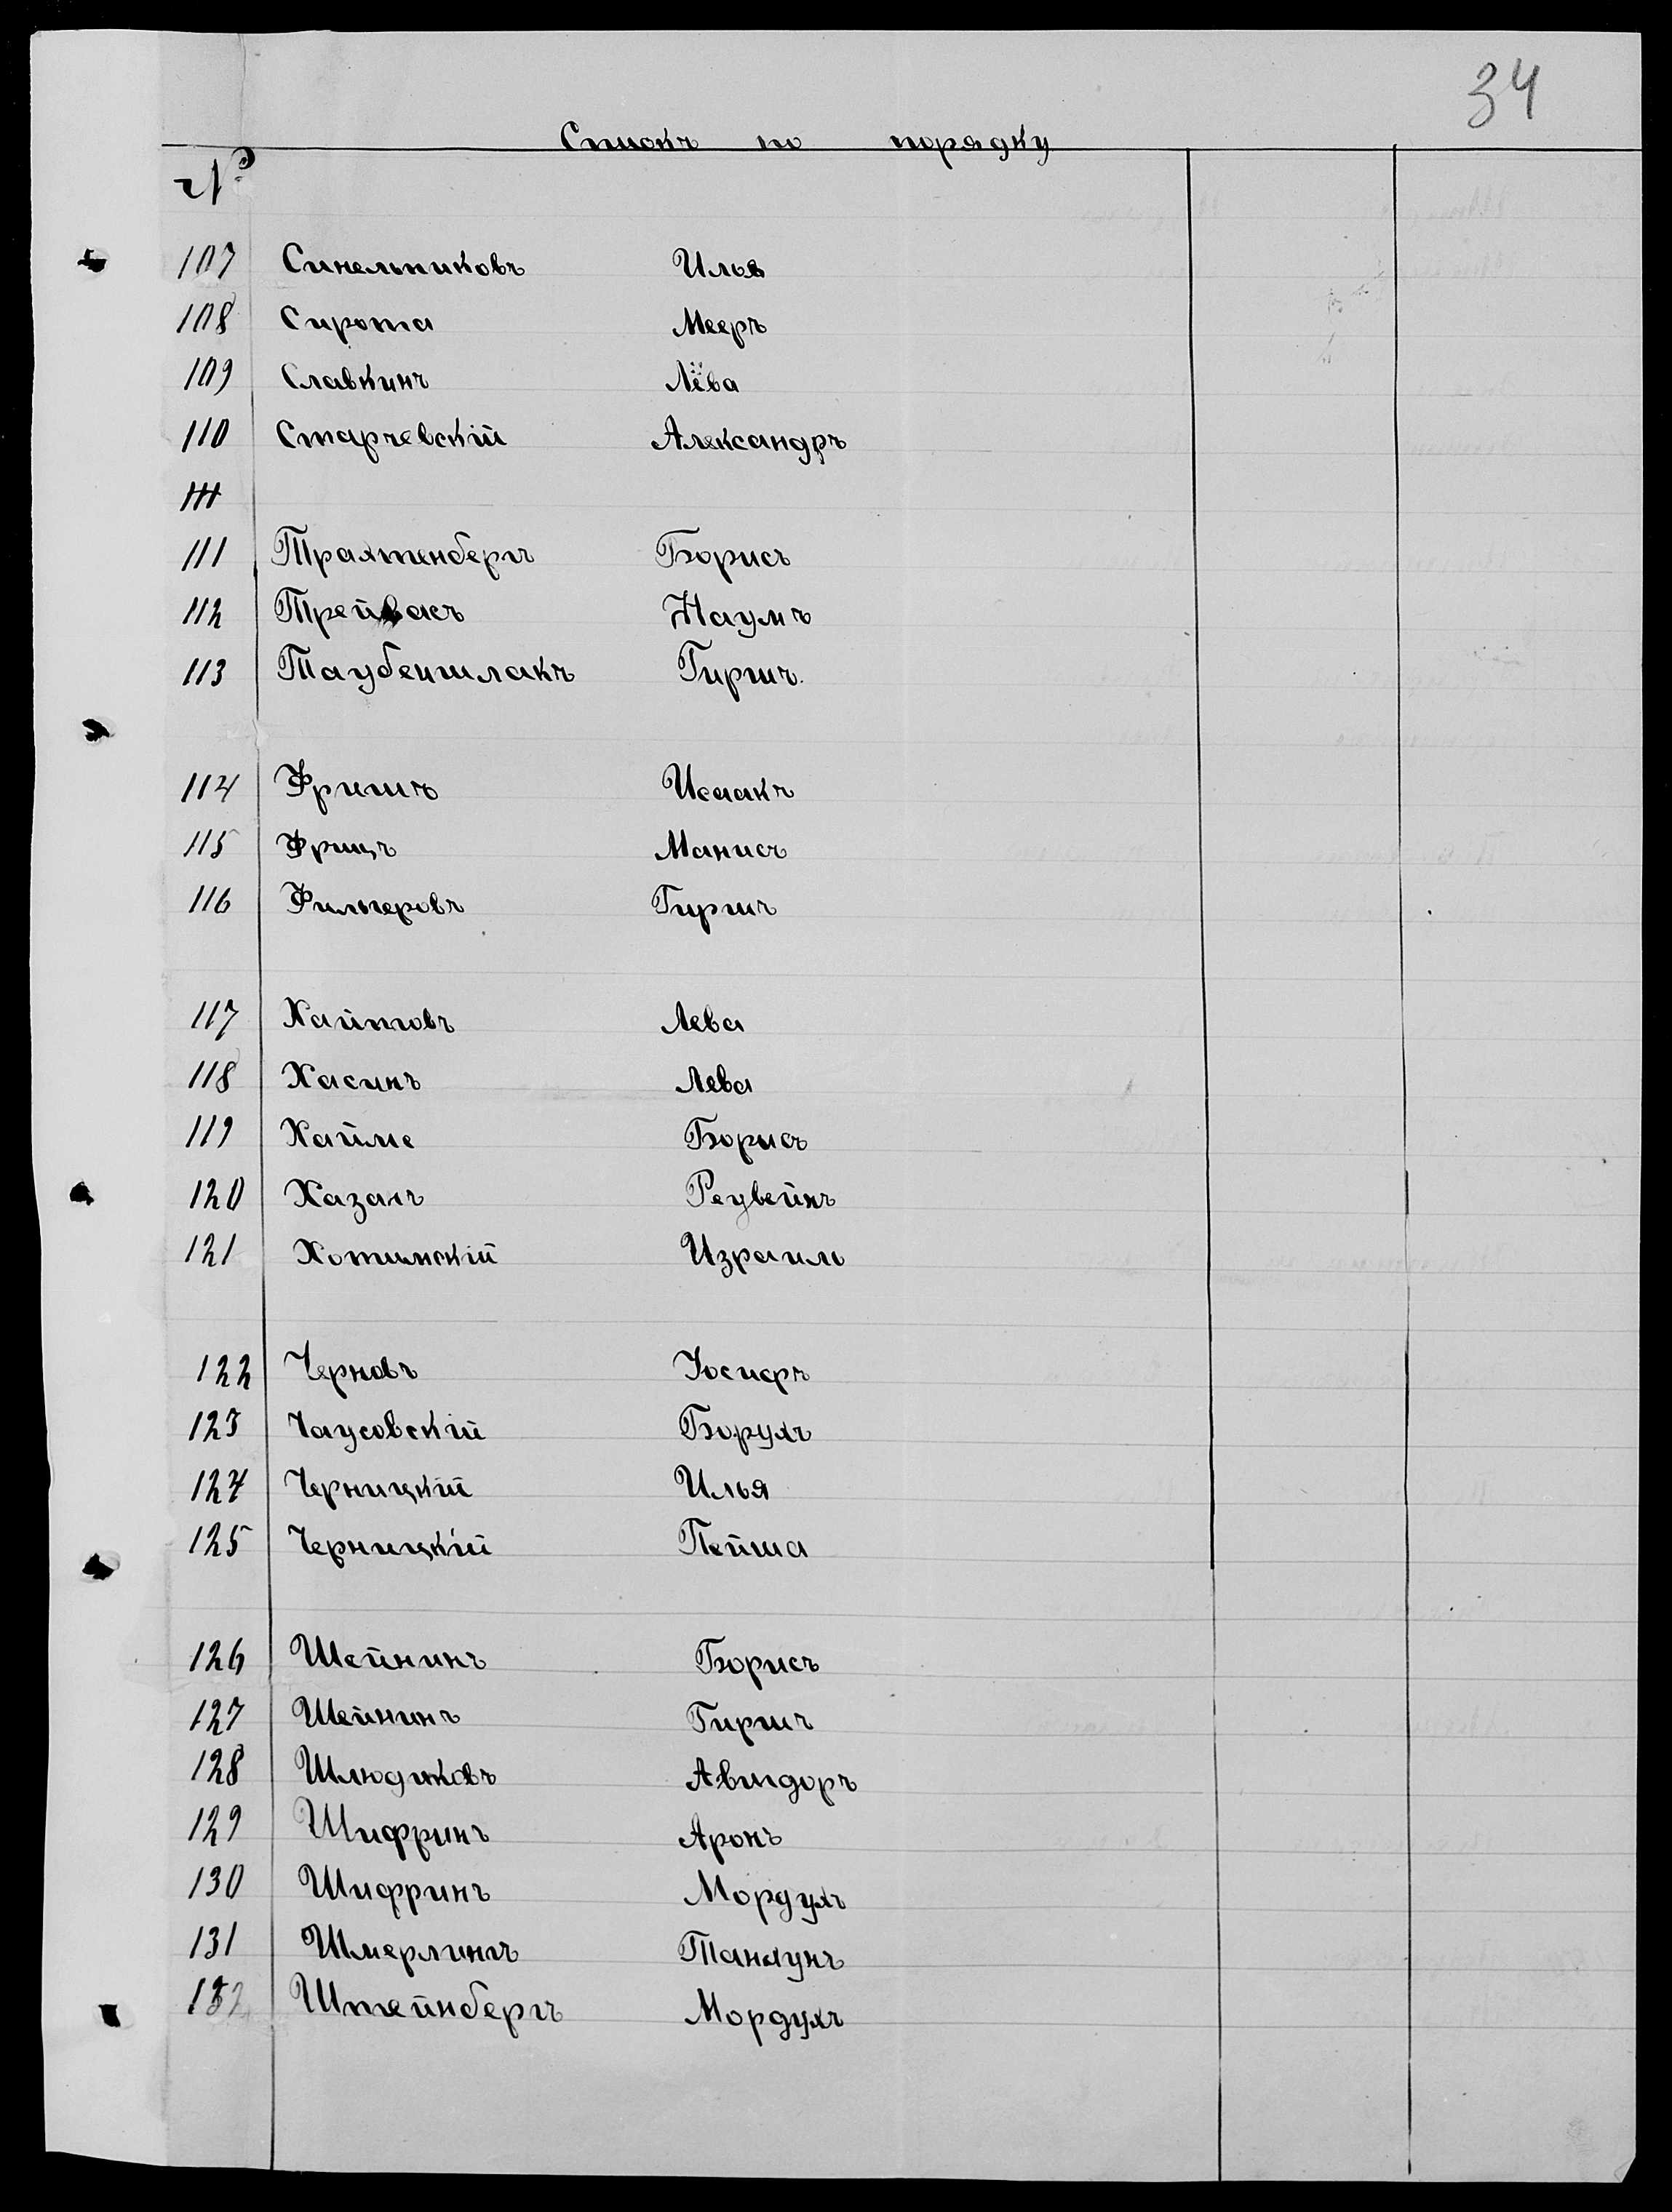 34
Списокъ по порядку
№
107 Синельниковъ Илья
108 Сирота Мееръ
109 Славкинъ Лёва
110 Старчевскій Александръ
111
111 Трахтенбергъ Борисъ
112 Трейвасъ Наумъ
113 Таубеншлакъ Гиршъ.
114 Фришъ Исаакъ
115 Фрицъ Манисъ
116 Фильцеровъ Гиршъ
117 Хаитовъ Лева
118 Хасинъ Лева
119 Хайме Борисъ
120 Хазанъ Реувейнъ
121 Хотимскій Израиль
122 Черновъ Іосифъ
123 Чаусовскій Борухъ
124 Черницкій Илья
125 Черницкій Пейша
126 Шейнинъ Борисъ
127 Шейнинъ Гиршъ
128 Шлюдиковъ Авигдоръ
129 Шифринъ Аронъ
130 Шифринъ Мордухъ
131 Шмерлингъ Танхунъ
132 Штейнбергъ Мордухъ